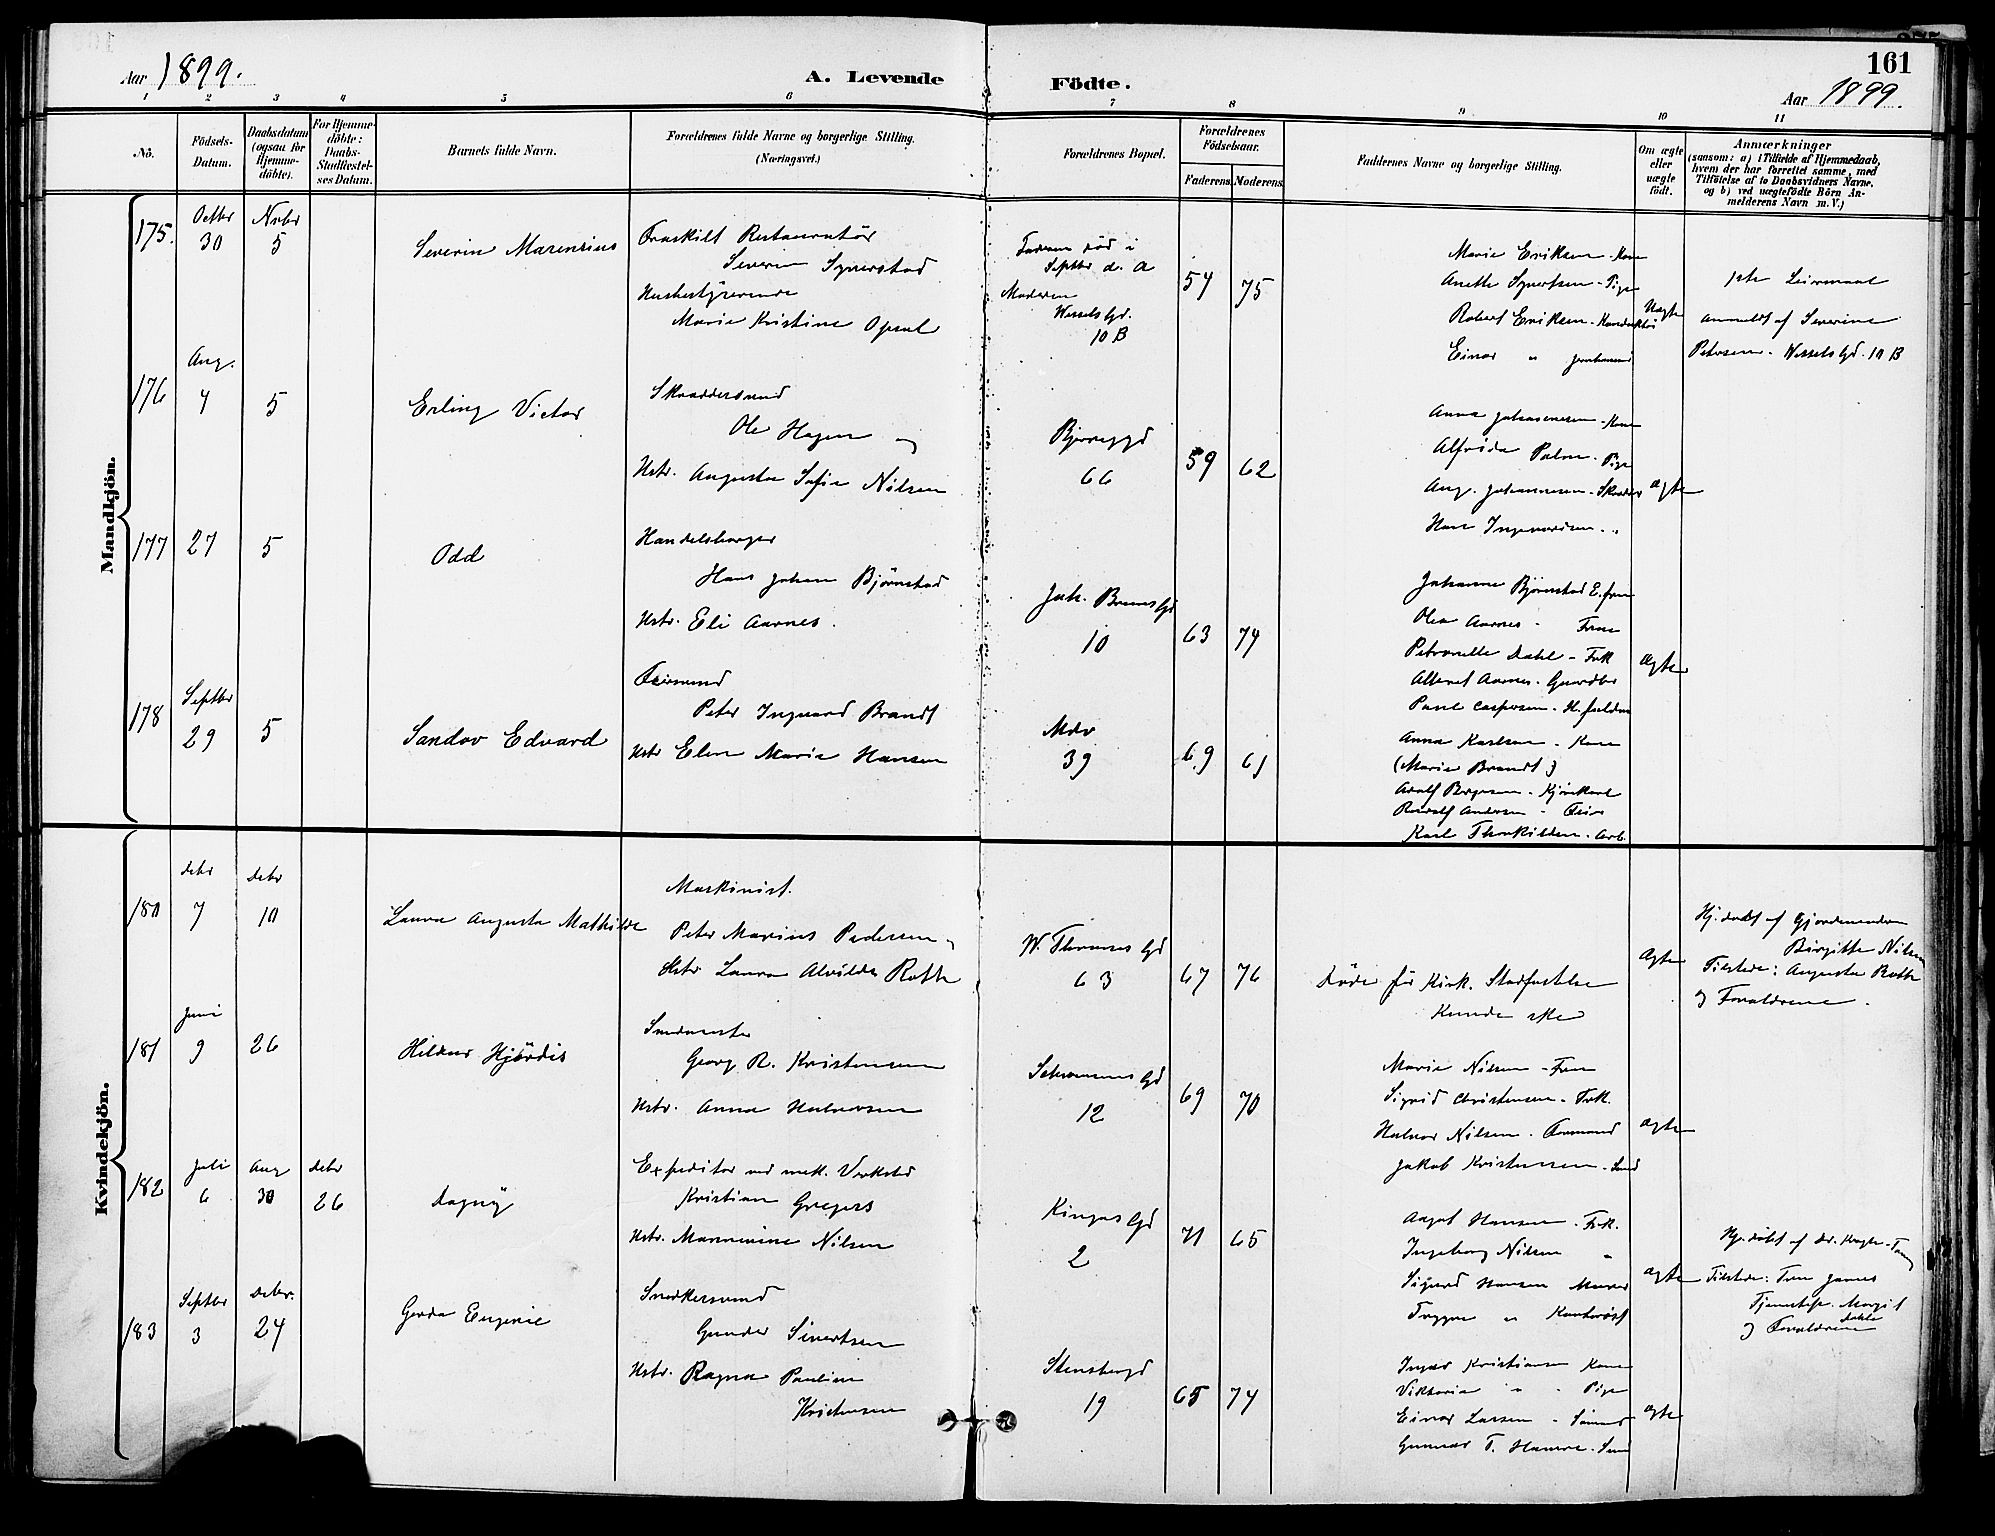 161
Aar 1899.
A. Levende Födte.
Aar 1899.
1 2 3 4 5 6 7 8 9 10 11
No.
Födsels-Datum.
Daabsdatum (ogsaa for Hjemmedöbte).
For Hjemmedöbte: Daabs-Stadfæstelses Datum.
Barnets fulde Navn.
Forældrenes fulde Navne og borgerlige Stilling. (Næringsvei.)
Forældrenes Bopæl.
Forældrenes Födselsaar.
Faderens. Moderens.
Faddernes Navne og borgerlige Stilling.
Om ægte eller uægte födt.
Anmærkninger
(saasom: a) i Tilfælde af Hjemmedaab,
hvem der har forrettet samme, med
Tilföielse af to Daabsvidners Navne,
og b) ved uægtefödte Börn An-
melderens Navn m. V.)
Mandkjön.
175.
Octbr 30
Novbr 5
Severin Marensius
Fraskilt Restauratør
Severin Syverstad
Husbestyrerinde
Marie Kristine Opsal
Faderen død i
Septbr d. A
Moderen
Wessels Gd.
10 B
54 75
Marie Eriksen - Kone
Anette Syvertsen - Pige
Robert Eriksen - Konduktør
Einar "
Uægte
1ste Leiermaal
anmeldt af Severine
Petersen. Wessels Gd. 10 B
176
Aug. 4
5
Erling Victor
Skræddersvend
Ole Hagen og
Hstr. Augusta Sofie Nilsen
66
59 62
Anna Johannesen - Kone
Alfrida Palm - Pige
Aug. Johannesen - Skrædder
Hans
ægte
177
27
5
Odd
Handelsborger
Hans Johan Bjørnstad
Hstr. Eli Aarnes.
Joh. Bruns Gd
10
63 74
Johanne Bjørnstad E. frue
Olea Aarnes - Frue
Petronelle Dahl - Frk
Aarnes - Gaardbr
Paul Caspersen
ægte
178
Septbr 29
5
Sandov Edvard
Peter Ingvard Brandt
Hstr Elen Marie Hansen
39
69 61
Anna Karlsen - Kone
(Marie Brandt)
Adolf Børgesen - Kjørekarl
Andersen
Karl Thorkildsen - Arb.
Kvindekjön.
180
debr 7
debr 10
Laura Augusta Mathilde
Maskinist.
Peter Marius Pedersen og
Hstr Laura Alvilde Rotte
W. Thranes Gd
63
67 76
Døde før Kirk. Stadfæstelse
kunde ske
ægte
Hj. døbt af Gjordemoderen
Birgitte Nilsen
Tilstede: Augusta Rotte
og Forældrene.
181
Juni 9
26
Hildur Hjørdis
Georg R. Kristensen
Hstr. Anna Halvorsen
Schwensens Gd
12
69 70
Marie Nilsen - Frue
Sigrid Christensen - Frk.
Halvor Nilsen - Formand
Jakob Kristensen
ægte
182
Juli 6
Aug 30
debr 26
Dagny
Expeditør ved mek. Verksted
Kristian Gregers
Hstr. Nilsen
Kingos Gd
2
71 65
Aagot Hansen - Frk.
Ingeborg Nilsen "
Sigurd Hansen Murer
Trygve " Kontorist
ægte
Hj. døbt af
Tilstede: Frue
Margit
og Forældrene
183
Septbr 3
Debr. 24
Gerda Eugenie
Snedkersvend
Gunder Sivertsen
Hstr. Ragna Pauline
Kristensen
Stensbergd
19
65 74
Kristiansen Kone
Viktoria " - Pige
Einar Larsen
Gunnar T. Hansen
ægte